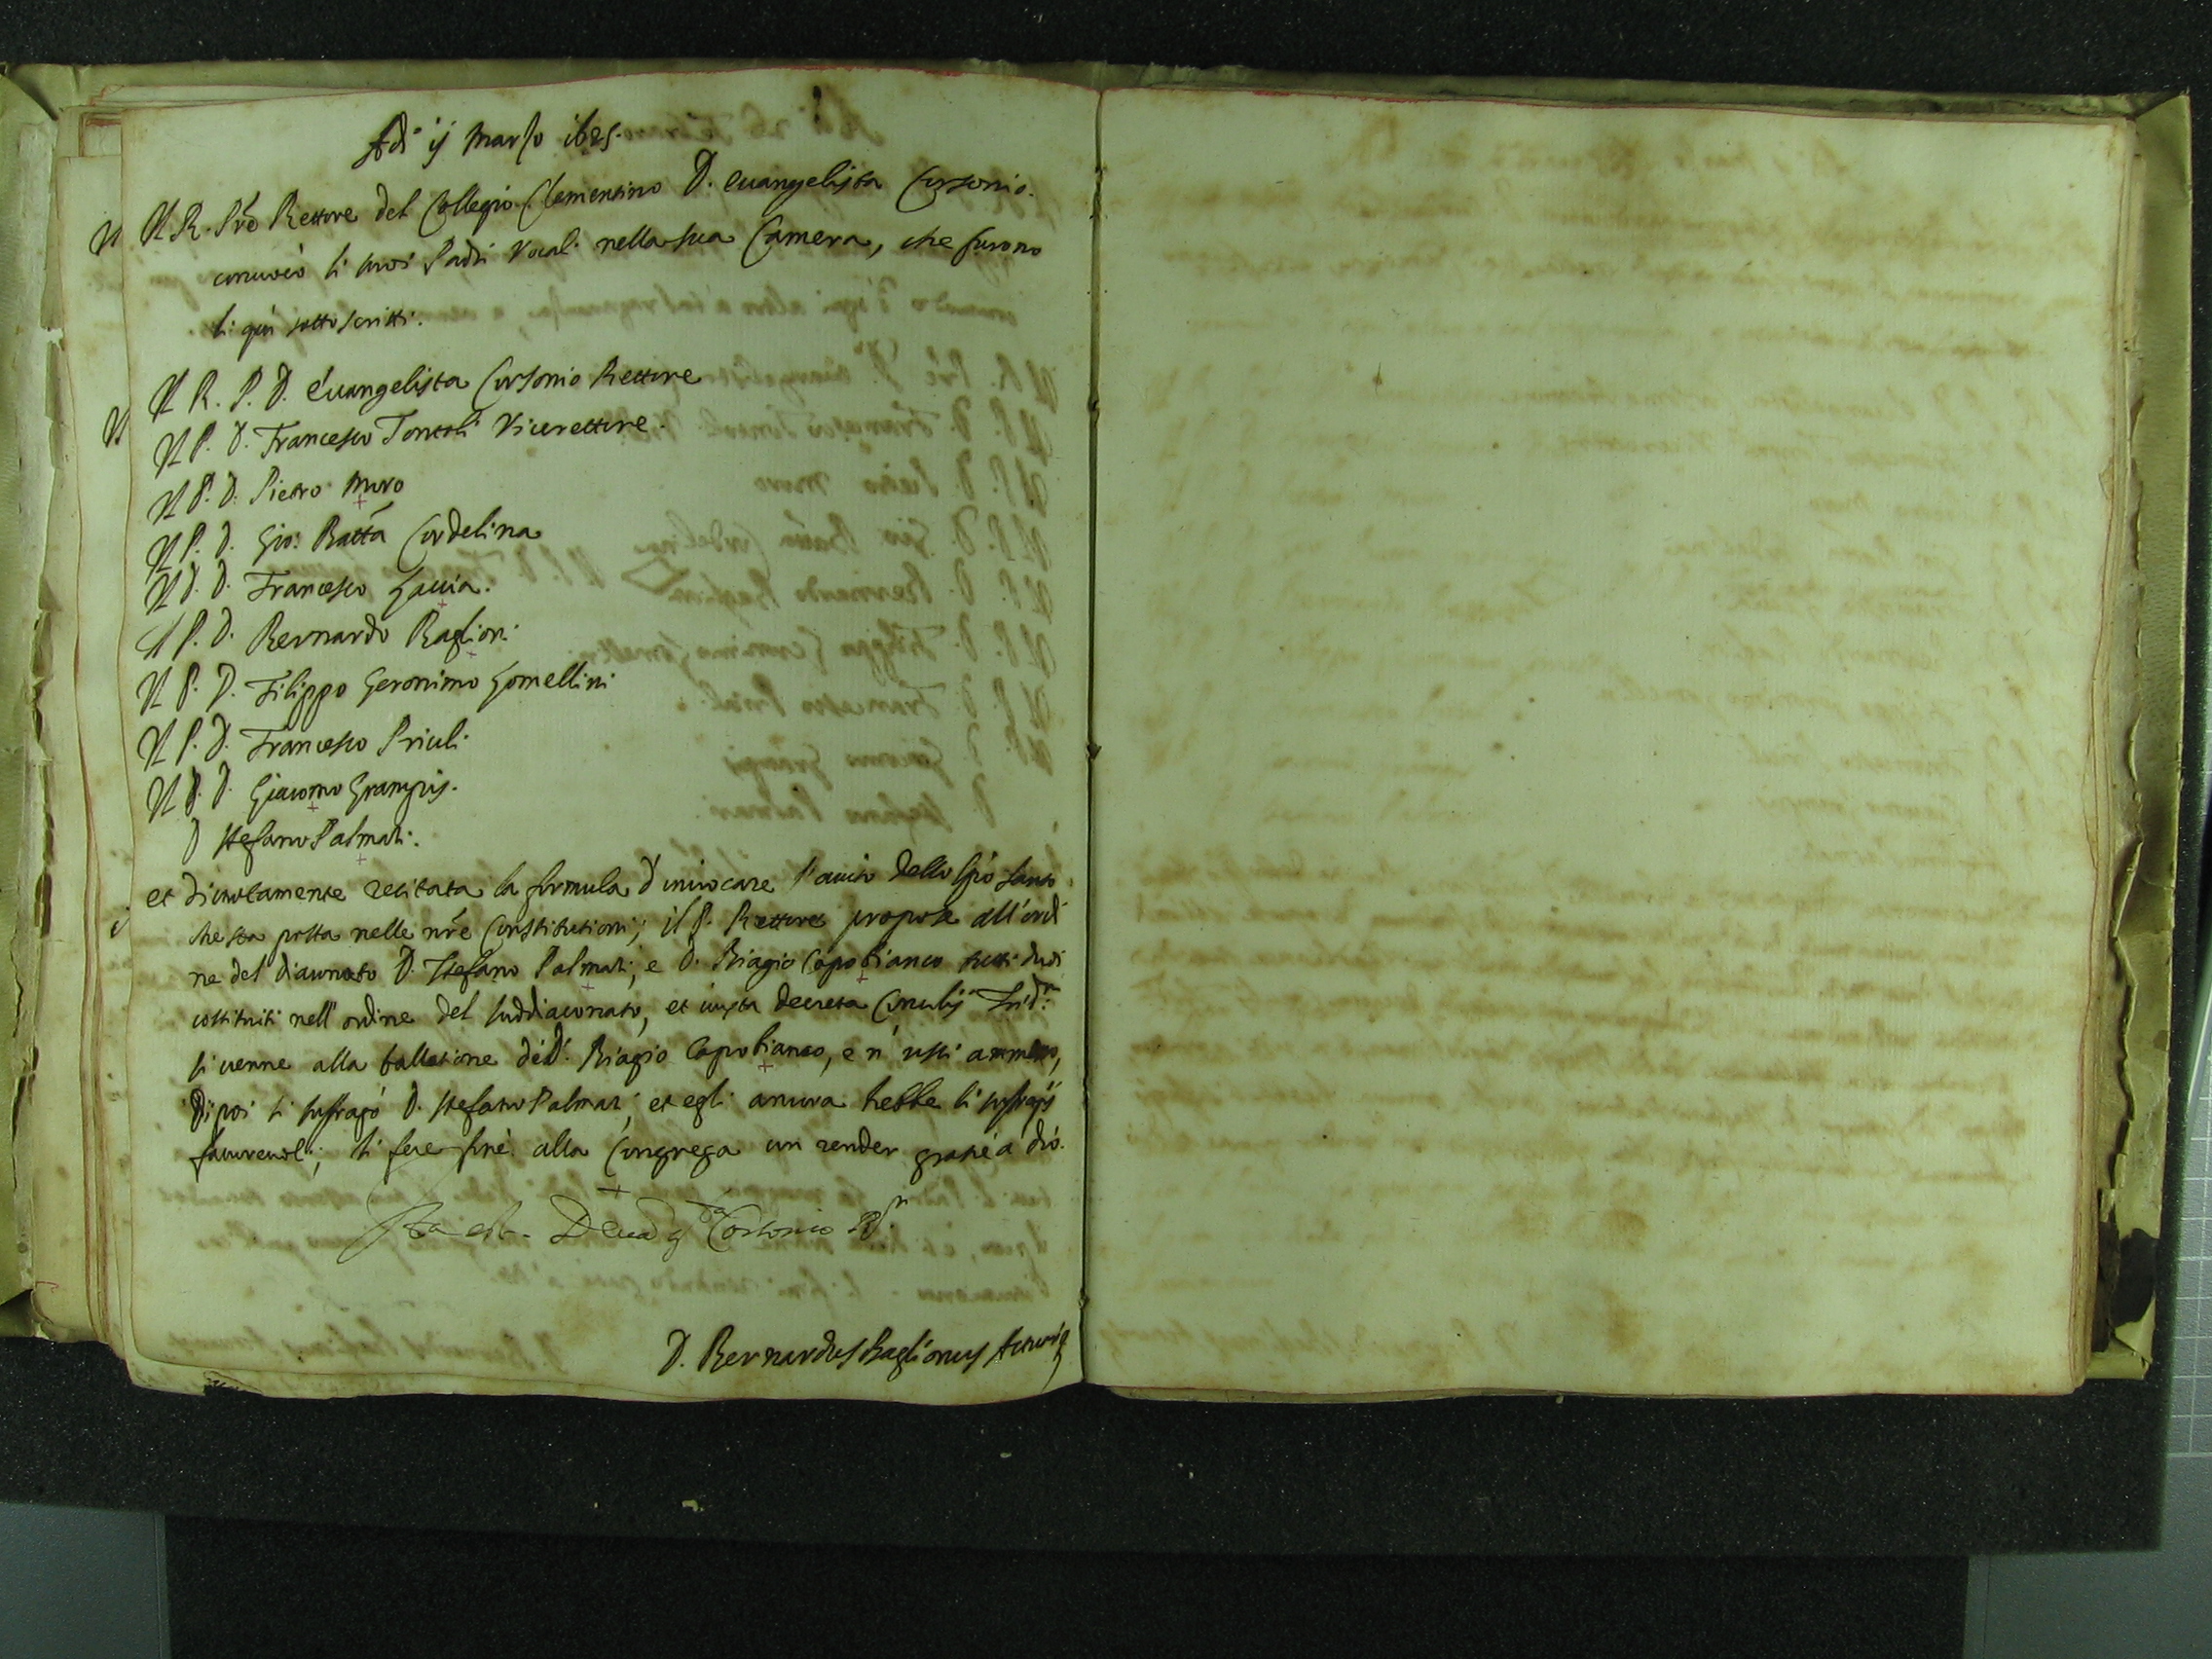 Adi ij Marso 1625.
Il R. Pre Rettore del Collegio Clementino D. Euangelista Cortonio.
conuocò li suoi Padri Vocali nella sua Camera, che furono
li qui sotto scritti.
Il R. P. D. Euangelista Cortonio Rettore
Il P. D. Francesco Tontoli Vicerettore.
Il P. D. Pietro Moro
Il P. D. Gio: Batta Cordelina
Il P. D. Francesco Gauia.
Il P. D. Bernardo Baglioni
Il P. D. Filippo Geronimo Gomellini
Il P. D. Francesco Priuli
Il P. D. Giacomo Grampis.
D Stefano Palmari.
et diuotamente recitata la formula d'inuocare l'auito dello Spo Santo
che sta posta nelle nre Constitutioni; il P. Rettore propose all'ordi
ne del diaconato D. Stefano Palmari, e D. Biagio Capobianco tutti dudi
costituiti nell'ordine del suddiaconato, et iuxta decreta Concilij Trid:
si uenne alla ballotione de D. Biagio Capobianco, e n'uscì ammesso,
Di poi si suffragò D. Stefano Palmari, et egli ancora hebbe li suffragij
fauoreuoli; si fece fine alla Congrega con render gratie a dio.
Ita est. D. Euagta Cortonio Rr
D. Bernardus Baglionus